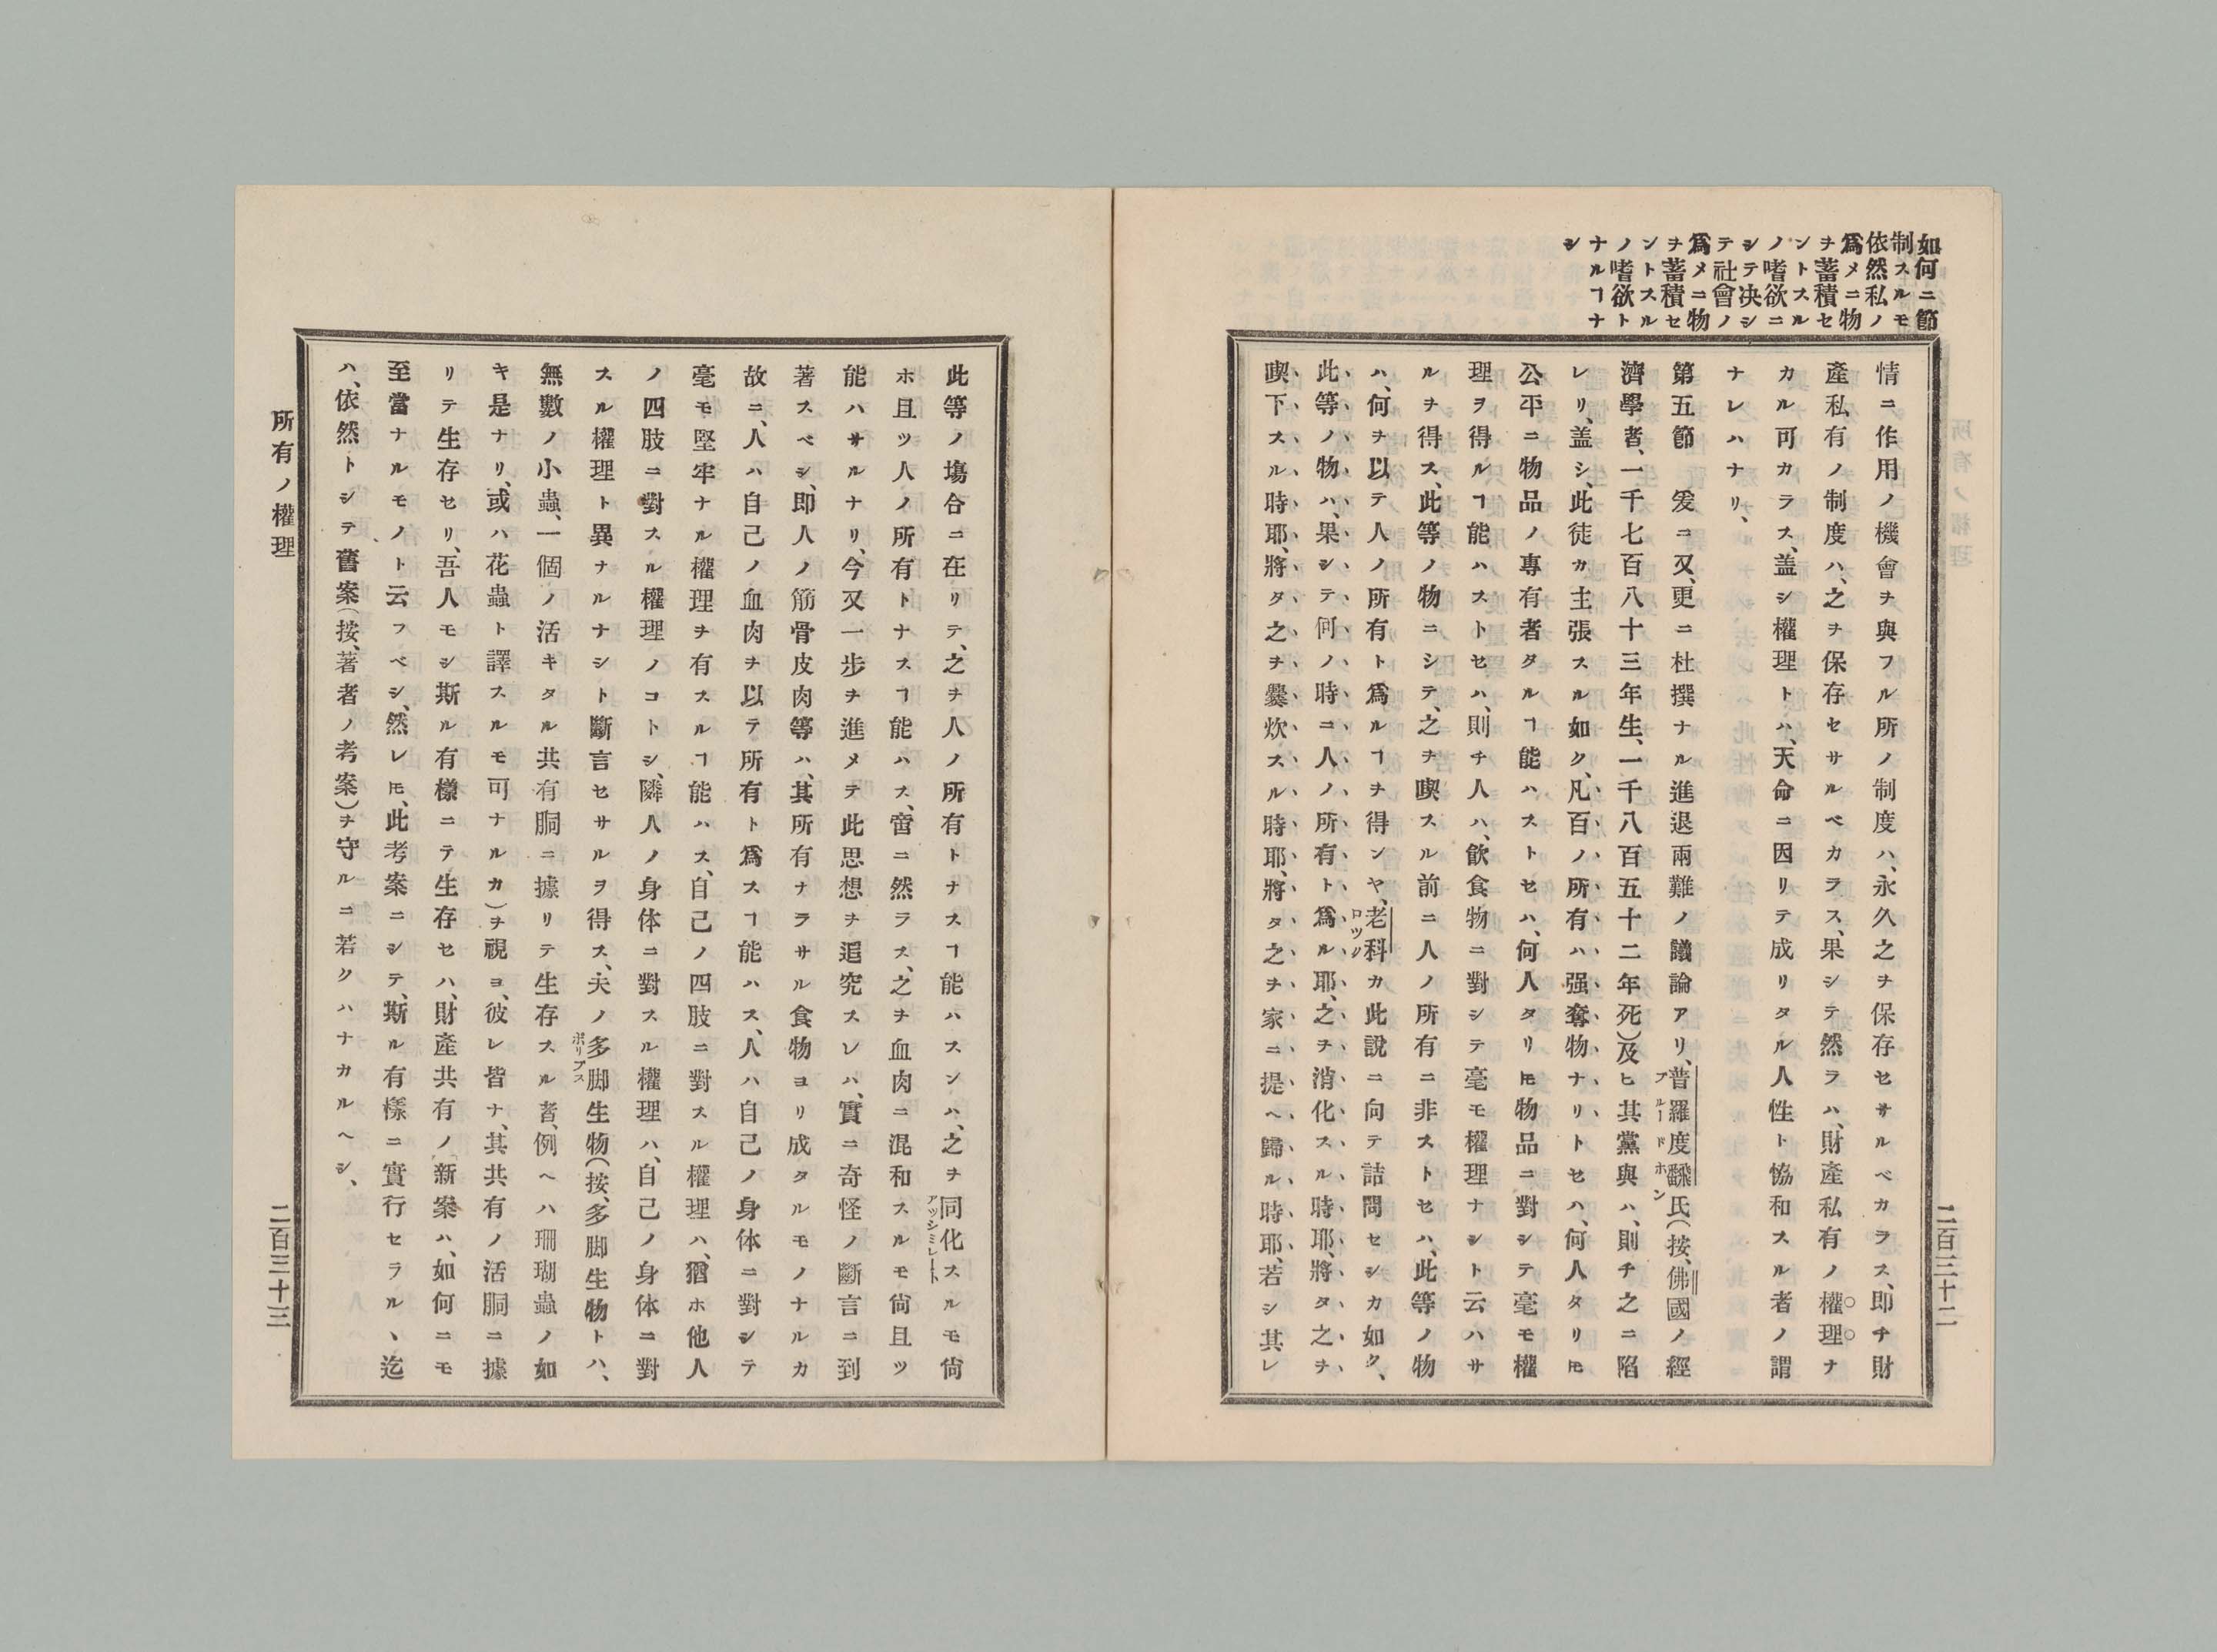 如何ニ節
制スルモ
依然私ノ
爲メニ物
ヲ蓄積セ
ントスル
ノ嗜欲ニ
シテ决シ
テ社會ノ
爲メニ物
ヲ蓄積セ
ントスル
ノ嗜欲ト
ナルヿナ
シ
情ニ作用ノ機會ヲ與フル所ノ制度ハ、永久之ヲ保存セサルベカラス、即チ財
產私有ノ制度ハ、之ヲ保存セサルベカラス、果シテ然ラハ、財產私有ノ權理ナ
カル可カラス、盖シ權理トハ、天命ニ因リテ成リタル人性ト協和スル者ノ謂
ナレハナリ、
第五節　爰ニ又、更ニ杜撰ナル進退兩難ノ議論アリ、普羅度飜氏(按、佛國ノ經
プルードホン
濟學者、一千七百八十三年生、一千八百五十二年死)及ヒ其黨與ハ、則チ之ニ陷
レリ、盖シ、此徒カ主張スル如ク、凡百ノ所有ハ强奪物ナリトセハ、何人タリㇳモ
公平ニ物品ノ專有者タルヿ能ハストセハ、何人タリㇳモ物品ニ對シテ毫モ權
理ヲ得ルヿ能ハストセハ、則チ人ハ、飮食物ニ對シテ毫モ權理ナシト云ハサ
ルヲ得ス、此等ノ物ニシテ、之ヲ喫スル前ニ人ノ所有ニ非ストセハ、此等ノ物
ハ、何ヲ以テ人ノ所有ト爲ルヿヲ得ンヤ、老科カ此說ニ向テ詰問セシカ如ク、
ロツク
此等ノ物ハ、果シテ何ノ時ニ人ノ所有ト爲ル耶、之ヲ消化スル時耶、將タ之ヲ
喫下スル時耶、將タ之ヲ爨炊スル時耶、將タ之ヲ家ニ提ヘ歸ル時耶、若シ其レ
二百三十二
此等ノ塲合ニ在リテ、之ヲ人ノ所有トナスヿ能ハスンハ、之ヲ同化スルモ尙
アッシミレート
ホ且ツ人ノ所有トナスヿ能ハス、啻ニ然ラス、之ヲ血肉ニ混和スルモ尙且ツ
能ハサルナリ、今又一步ヲ進メテ此思想ヲ追究スレハ、實ニ奇怪ノ斷言ニ到
著スベシ、即人ノ筋骨皮肉等ハ、其所有ナラサル食物ヨリ成タルモノナルカ
故ニ、人ハ自己ノ血肉ヲ以テ所有ト爲スヿ能ハス、人ハ自己ノ身体ニ對シテ
毫モ堅牢ナル權理ヲ有スルヿ能ハス、自己ノ四肢ニ對スル權理ハ、猶ホ他人
ノ四肢ニ對スル權理ノコトシ、隣人ノ身体ニ對スル權理ハ、自己ノ身体ニ對
スル權理ト異ナルナシト斷言セサルヲ得ス、夫ノ多脚生物(按、多脚生物トハ、
ポリプス
無數ノ小蟲、一個ノ活キタル共有胴ニ據リテ生存スル者、例ヘハ珊瑚蟲ノ如
キ是ナリ、或ハ花蟲ト譯スルモ可ナルカ)ヲ視ヨ、彼レ皆ナ、其共有ノ活胴ニ據
リテ生存セリ、吾人モシ斯ル有樣ニテ生存セハ、財產共有ノ新案ハ、如何ニモ
至當ナルモノト云フベシ、然レㇳモ、此考案ニシテ、斯ル有樣ニ實行セラルヽ迄
ハ、依然トシテ舊案(按、著者ノ考案)ヲ守ルニ若クハナカルヘシ、
所有ノ權理
二百三十三